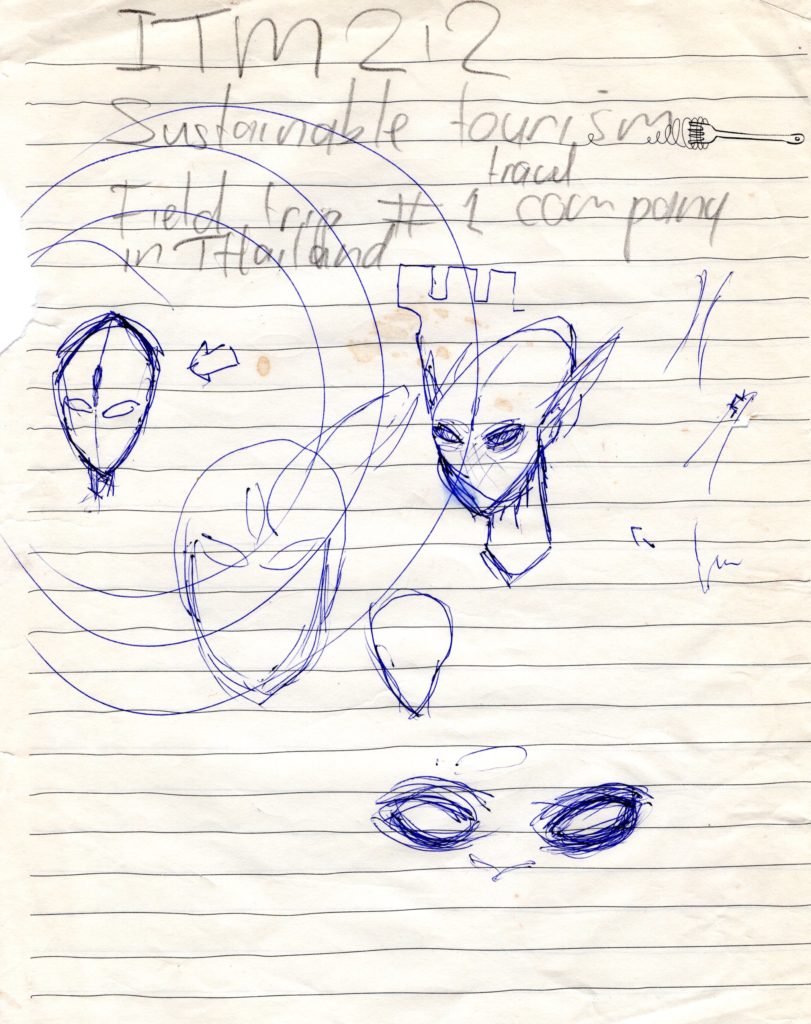 ITM 212
Sustainable tourism
travel
Field trip # 1 company
in THailand